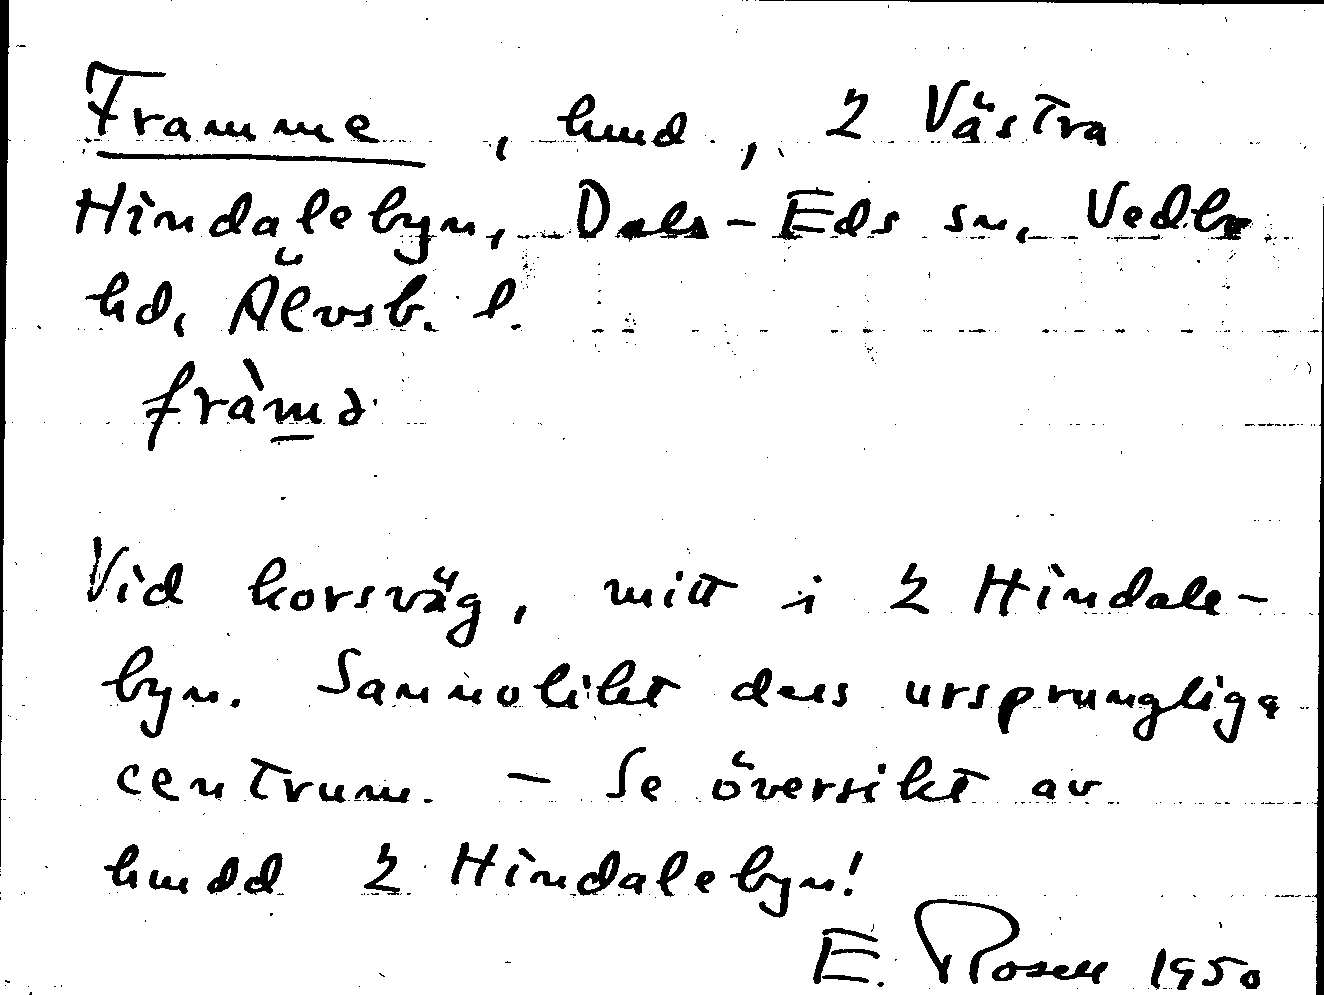 Framme, hmd, 2 Västra
Hindalebyn, Dals-Eds sn, Vedbo
hd, Älvsb. l.
fràmə
Vid korsväg, mitt i 2 Hindale-
byn. Sannolikt dess ursprungliga
centrum. – Se översikt av
hmdd 2 Hindalebyn!
E. Rosell 1950